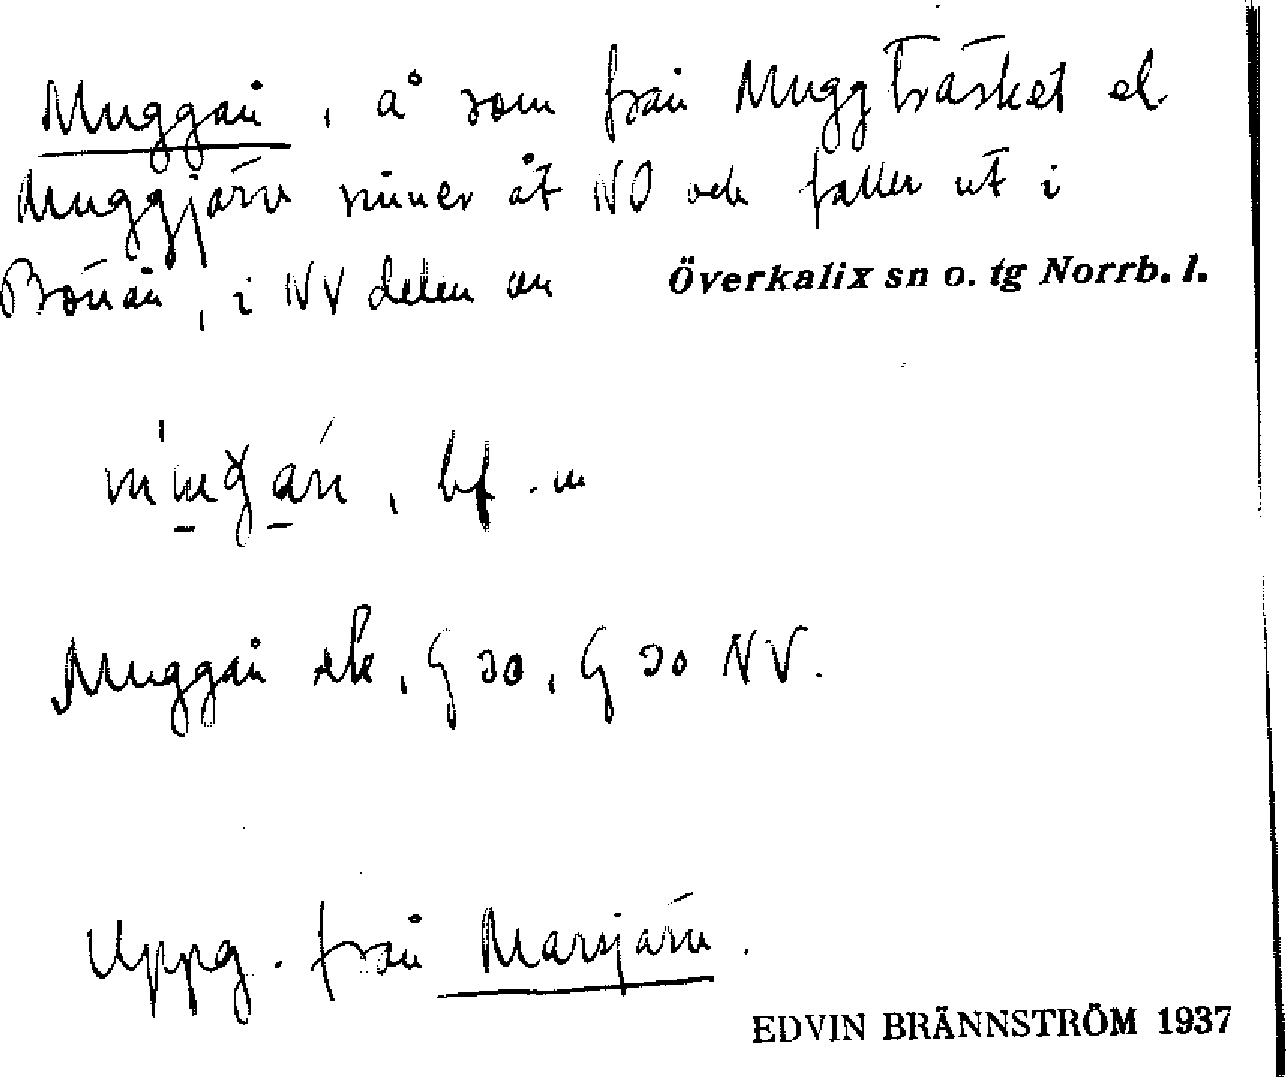 Muggån, å som från Muggträsket el
Muggjärv rinner åt NO och faller ut i
i NV delen av Överkalix sn o. tg Norrb. l.
bf. 
Muggån ek, G 20, G 20 NV.
Uppg. från Marsjärv.
EDVIN BRÄNNSTRÖM 1937